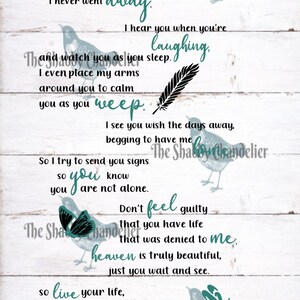 I never went away.
I hear you when you're
laughing,
and watch you as you sleep.
I even place my arms
around you to calm
you as you weep.
I see you wish the days away,
begging to have me
The Shabby Chandelier
The Shabby Chandelier
So I try to send you signs
so you know
you are not alone.
The Shabby Chandelier
Don't feel guilty
that you have life
that was denied to me,
heaven is truly beautiful,
just you wait and see.
so live your life,